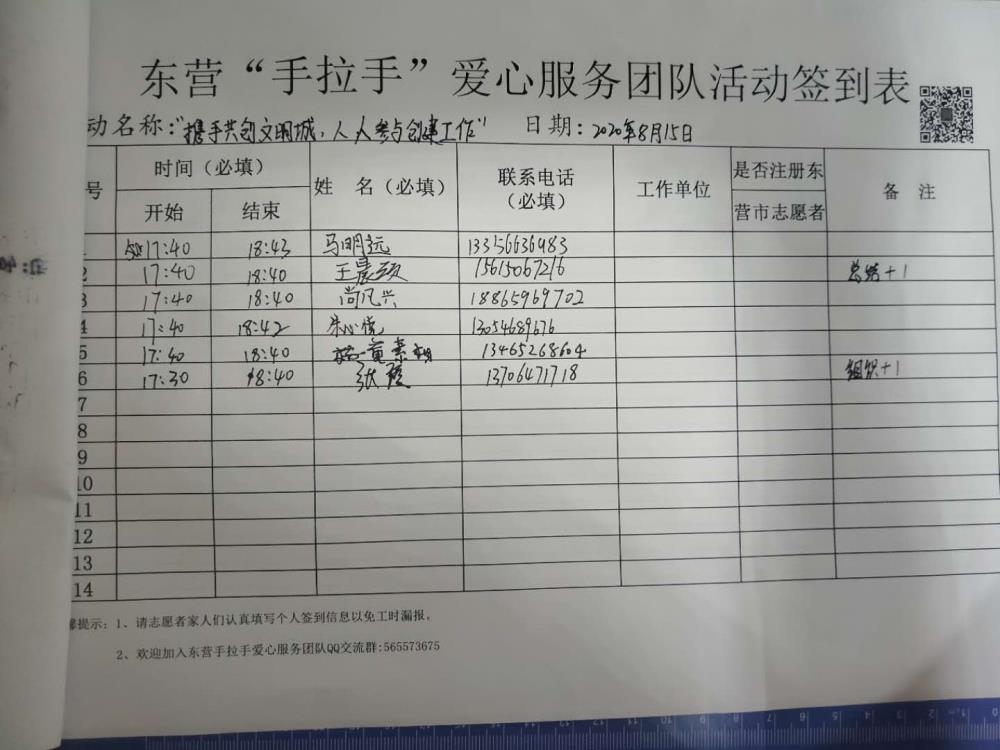 东营“手拉手”爱心服务团队活动签到表
动名称:“携手共创文明城,人人参与创建工作” 日期:2020年8月15日
号 时间(必填) 姓 名(必填) 联系电话(必填) 工作单位 是否注册东营市志愿者 备 注
开始 结束
17:40 18:43 马明远 13356636983
2 17:40 18:40 王 15615067216 总结+1
3 17:40 18:40 尚凡兴 18865969702
4 17:40 18:42 朱心悦 13054689676
5 17:40 18:40 董素 13465268604
6 17:30 18:40 张 13706471718 组织+1
7
8
9
10
11
12
13
14
提示:1、请志愿者家人们认真填写个人签到信息以免工时漏报。
2、欢迎加入东营手拉手爱心服务团队QQ交流群:565573675